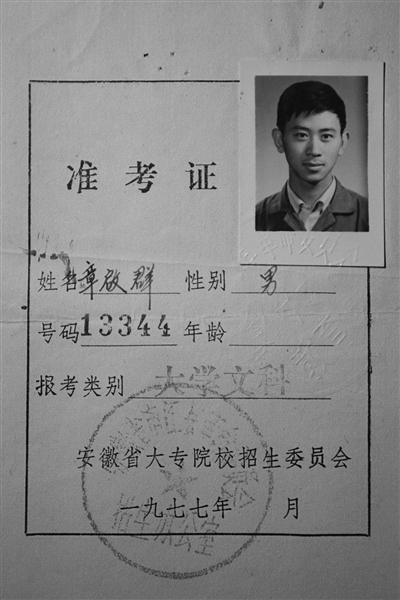 准考证
姓名 章启群 性别 男
号码 13344 年龄
报考类别 大学文科
安徽省大专院校招生委员会
一九七七年 月
招生办公室